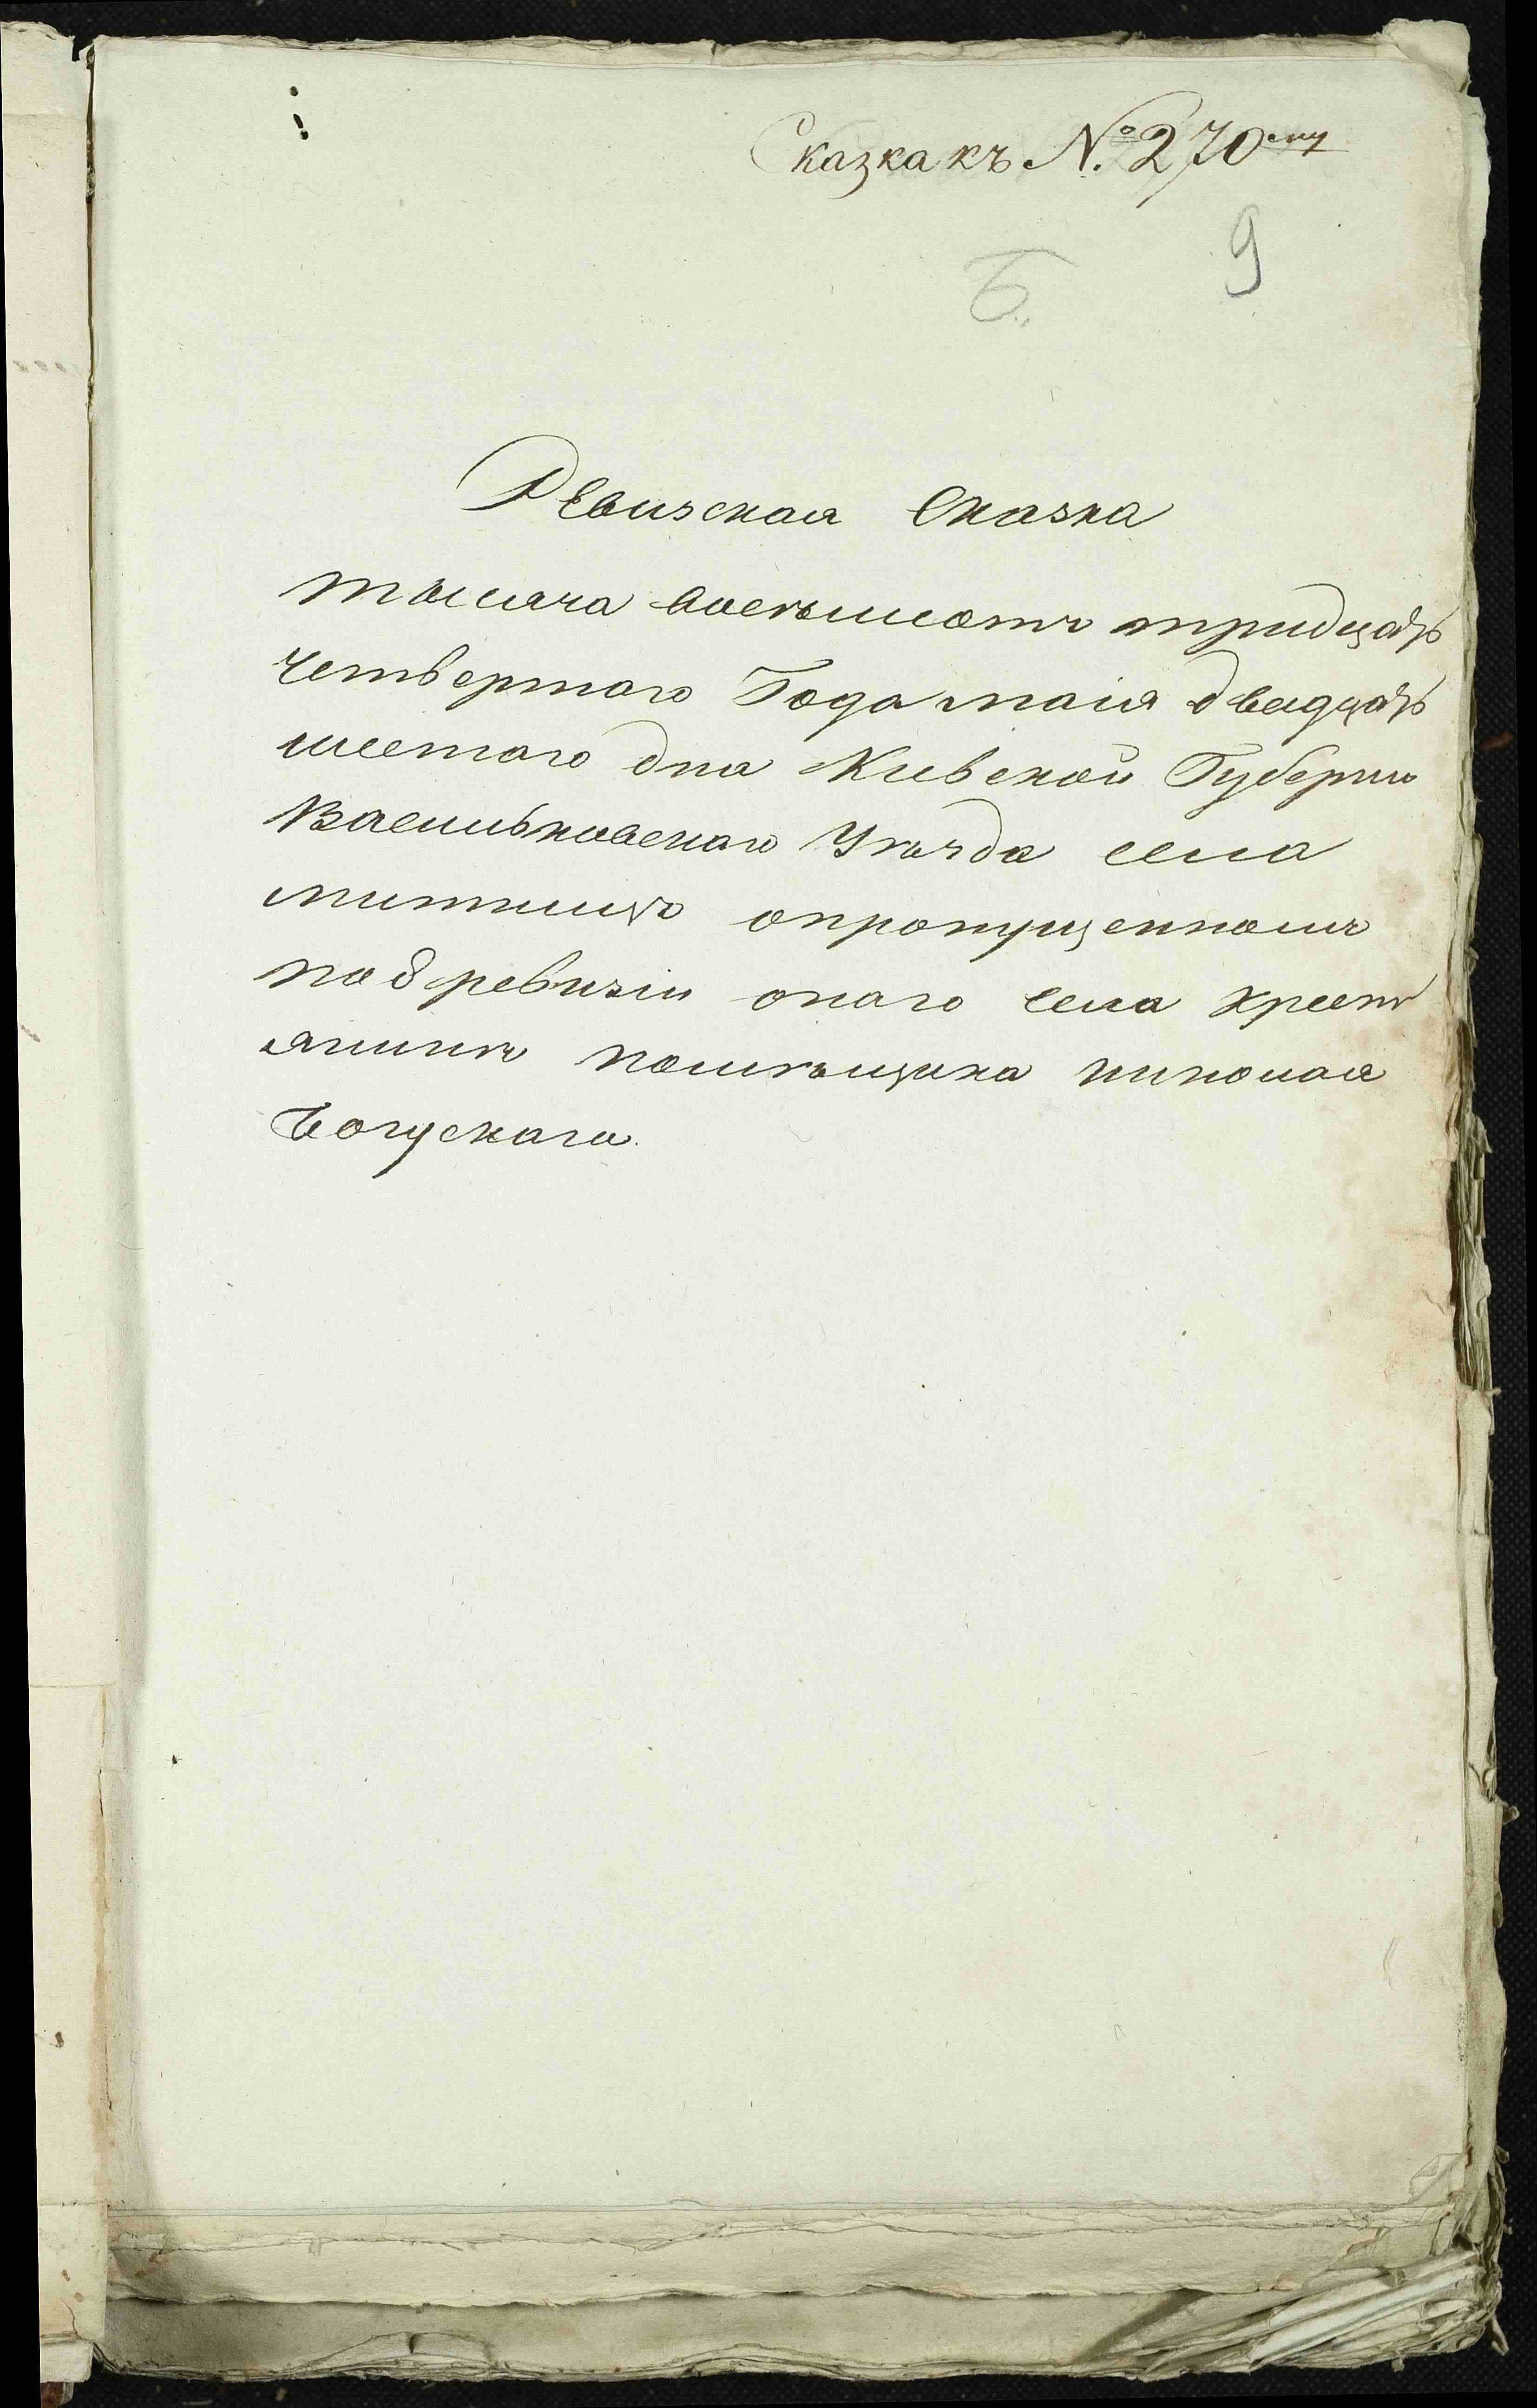 Сказка къ №. 270му
9
Б.
Ревизская Сказка
тысяча восемьсотъ тридцать
четвертаго Года маія двадцать
шестаго дна Кіевской Губерніи
Васильковскаго Уѣзда села
опропущенномъ
по 8 ревизіи онаго села крест
янинѣ помѣщика николая